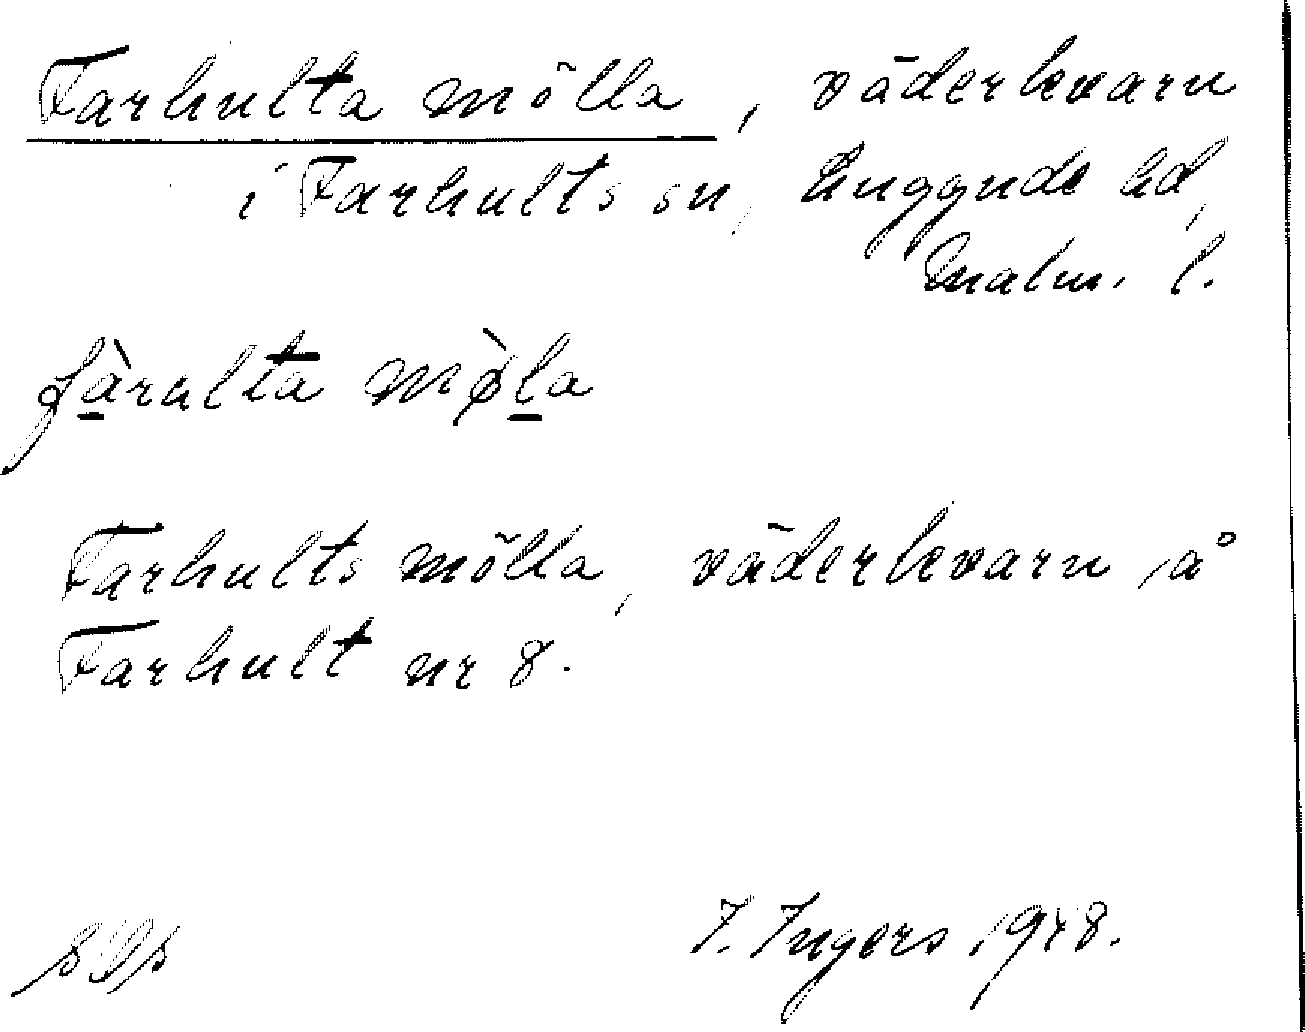 Farhulta mölla, väderkvarn
i Farhults sn, Luggude hd,
Malm. l.
fàrulta mø̀la
Farhults mölla, väderkvarn å
Farhult nr 8.
I. Ingers 1948.